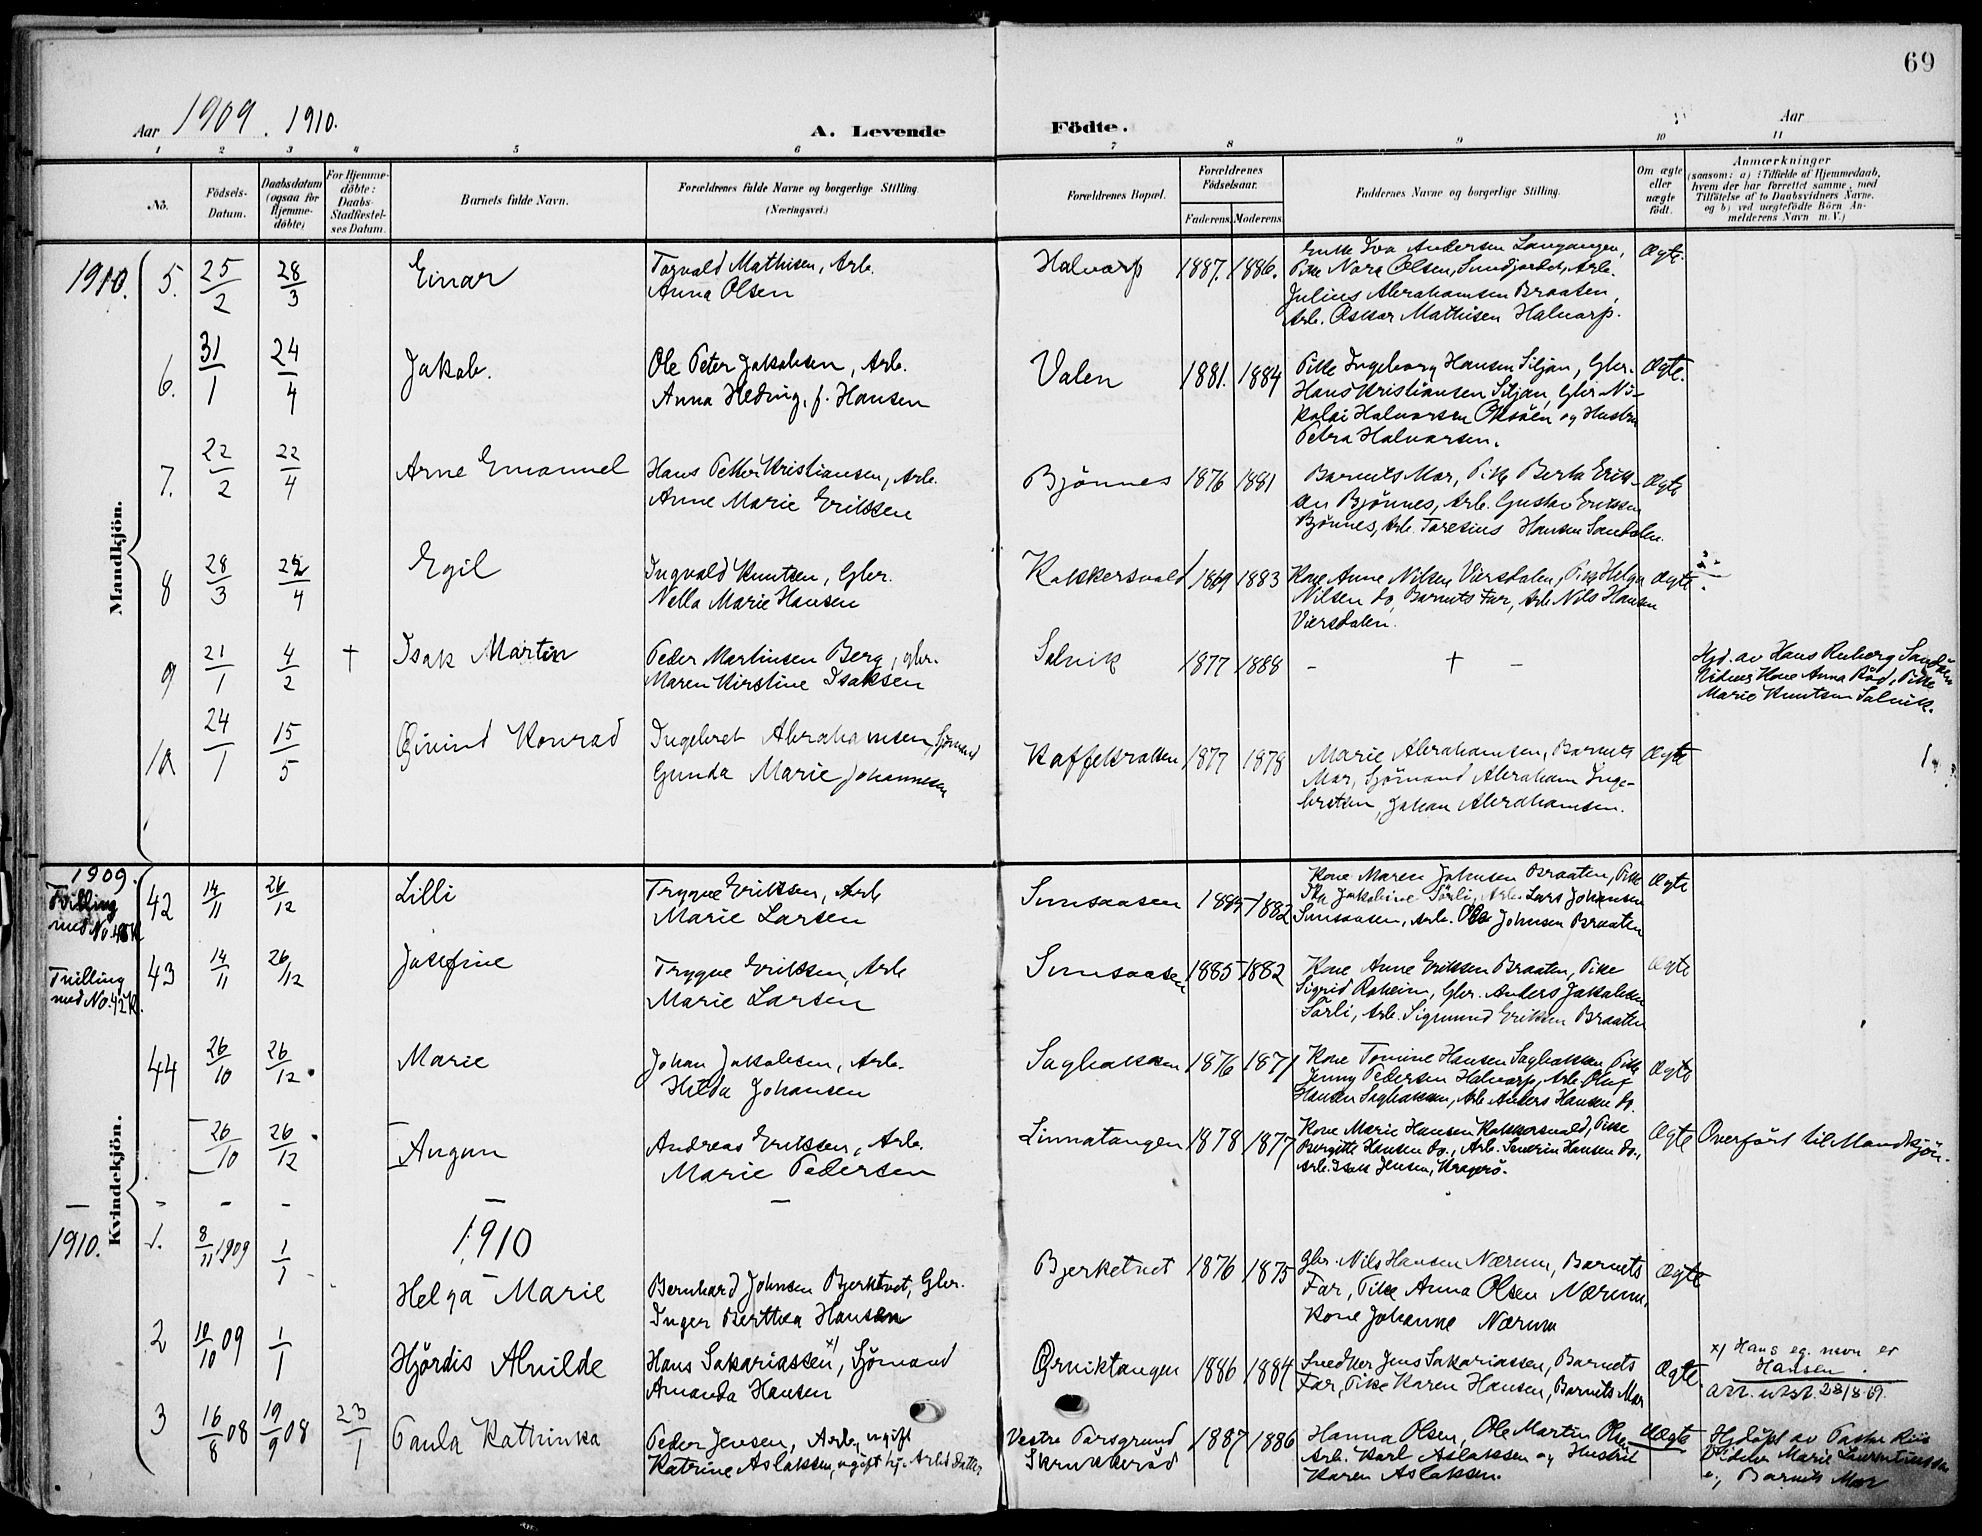 69
Aar 1909. 1910.
A. Levende Födte.
Aar
1 2 3 4 5 6 7 8 9 10 11
No.
Födsels-Datum.
Daabsdatum (ogsaa for Hjemme-döbte)
For Hjemme-döbte: Daabs-Stadfæstel-ses Datum.
Barnets fulde Navn.
Forældrenes fulde Navne og borgerlige Stilling.
(Næringsvei.)
Forældrenes Bopæl.
Forældrenes Födselsaar.
Faderens Moderens
Faddernes Navne og borgerlige Stilling.
Om ægte eller uægte födt.
Anmærkninger
(saasom: a) i Tilfælde af Hjemmedaab,
hvem der har forrettet samme, med
Tilföielse af to Daabsvidners Navne,
og b) ved uægtefödte Börn An-
melderens Navn m. V.)
Mandkjön.
1910. 5. 25/2 28/3 Einar
Torvald Mathisen, Arb.
Anna Olsen
Halvarp 1887. 1886.
Enke Iva Andersen Langangen,
Pike Nora Olsen, Sundjordet, Arb.
Julius Abrahamsen Braaten,
Arb. Oskar Mathisen Halvarp.
Ægte.
6. 31/1 24/4 Jakob.
Ole Peter Jakobsen, Arb.
Anna Hedvig, f. Hansen
Valen 1881. 1884
Pike Ingeborg Hansen Siljan, Gbr.
Hans Kristiansen Siljan, Gbr. Ni-
kolai Halvorsen Oksöen og Hustru
Petra Halvorsen.
Ægte.
7. 22/2 22/4 Arne Emanuel
Hans Petter Kristiansen, Arb.
Anne Marie Eriksen
Bjönnes 1876 1881
Barnets Mor, Pike Berta Erik-
sen Bjönnes, Arb. Gustav Eriksen
Bjönnes, Arb. Taresius Hansen Sandalen.
Ægte
8 28/3 24/4 Egil
Ingvald Knutsen, Gbr.
Nella Marie Hansen
Kokkersvold 1869 1883
Kone Anne Nilsen Viersdalen, Pike Helga
Nilsen do, Barnets Far, Arb. Nils Hansen
Viersdalen.
Ægte
9 21/1 4/2 † Isak Martin
Peder Martinsen Berg, gbr.
Maren Kirstine Isaksen
Salvik 1877 1888
- † -
Hjd. av Hans Reberg Sandöen
Vidner Kone Anna Röd, Pike
Marie Knutsen Salvik.
10 24/1 15/5 Öivind Konrad
Ingebret Abrahamsen, Sjömand
Gunda Marie Johannesen
Kaffebratten 1877 1878
Marie Abrahamsen, Barnets
Mor, Sjömand Abraham Inge-
bretsen, Johan Abrahamsen.
Ægte
Kvindekjön.
1909.
Tvilling med No. 43 K
42 14/11 26/12 Lilli
Trygve Eriksen, Arb
Marie Larsen
Simsaasen 1885 1882
Kone Maren Johnsen Braaten, Pike
Ida Jakobine Sörli, Arb. Lars Johansen
Simsaasen, Arb. Ole Johnsen Braaten
Ægte
Tvilling med No. 42 K.
43 14/11 26/12 Josefine
Trygve Eriksen, Arb
Marie Larsen
Simsaasen 1885 1882
Kone Anne Eriksen Braaten, Pike
Sigrid Oaheim, Gbr. Anders Jakobsen
Sörli, Arb. Sigmund Eriksen Braaten
Ægte
44 26/10 26/12. Marie
Johan Jakobsen, Arb.
Hilda Johansen
Sagbakken 1876 1871
Kone Tomine Hansen Sagbakken, Pike
Jenny Pedersen Halvarp, Arb. Oluf
Hansen Sagbakken, Arb. Anders Hansen do.
Ægte
26/10 26/12. Angun
Andreas Eriksen, Arb.
Marie Pedersen
Linnatangen 1878 1877
Kone Marie Hansen Kokkersvold, Pike
Bergitte Hansen do., Arb. Severin Hansen do.,
Arb. Isak Jensen, Kragerö.
Ægte
Overfört til Mandkjön.
1910
1910. 1. 8/11 1909 1/1 Helga Marie
Bernhard Johnsen Bjerketvet, Gbr.
Inger Berthea Hansen
Bjerketvet 1876 1875
Gbr. Nils Hansen Nærum, Barnets
Far, Pike Anna Olsen Nærum,
Kone Johanne Nærum
Ægte
2 10/10 09 1/1 Hjördis Alvilde
Hans Sakariassen x), Sjömand
Amanda Hansen
Örviktangen 1886 1884
Snedker Jens Sakariassen, Barnets
Far, Pike Karen Hansen, Barnets Mor
Ægte.
x) Hans eg. navn er
Hansen.
arr. utst. 28/8 69.
3 16/8 08 19/9 08 23/1 Paula Kathinka
Peder Jensen, Arb., ugift
Katrine Aslaksen, ugift hj. Arbd. datter
Vestre Porsgrund, Skrukkeröd 1887 1886
Hanna Olsen, Ole Martin Olsen
Arb. Karl Aslaksen og Hustru
Karen Aslaksen.
Uægte
Hj. döpt av Pastor Riis
Vidner Marie Laurentiussen
o, Barnets Mor